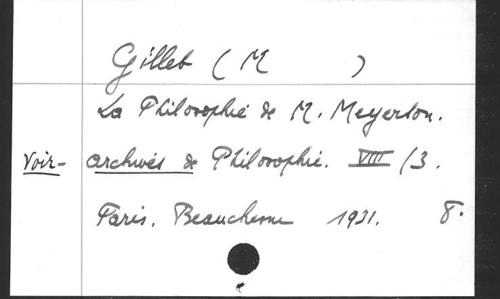 Gillet (M )
La Philosophie de M. Meyerson.
Voir- archives de Philosophie. VIII/3.
Paris. Beauchesne 1931. 8.